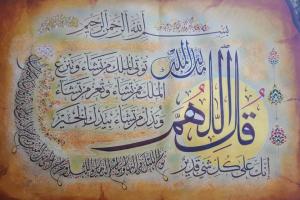 بسم الله الرحمن الرحيم
قل اللهم
مالك الملك
تؤتي الملك من تشاء وتنزع
الملك ممن تشاء وتعز من تشاء
وتذل من تشاء بيدك الخير
إنك على كل شيء قدير